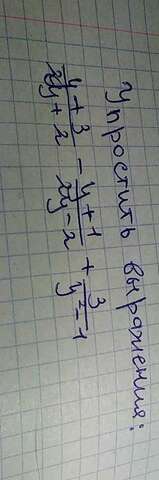 Упростить выражения:
(y+3)/(2y+2) - (y+1)/(2y-2) + 3/(y²-1)